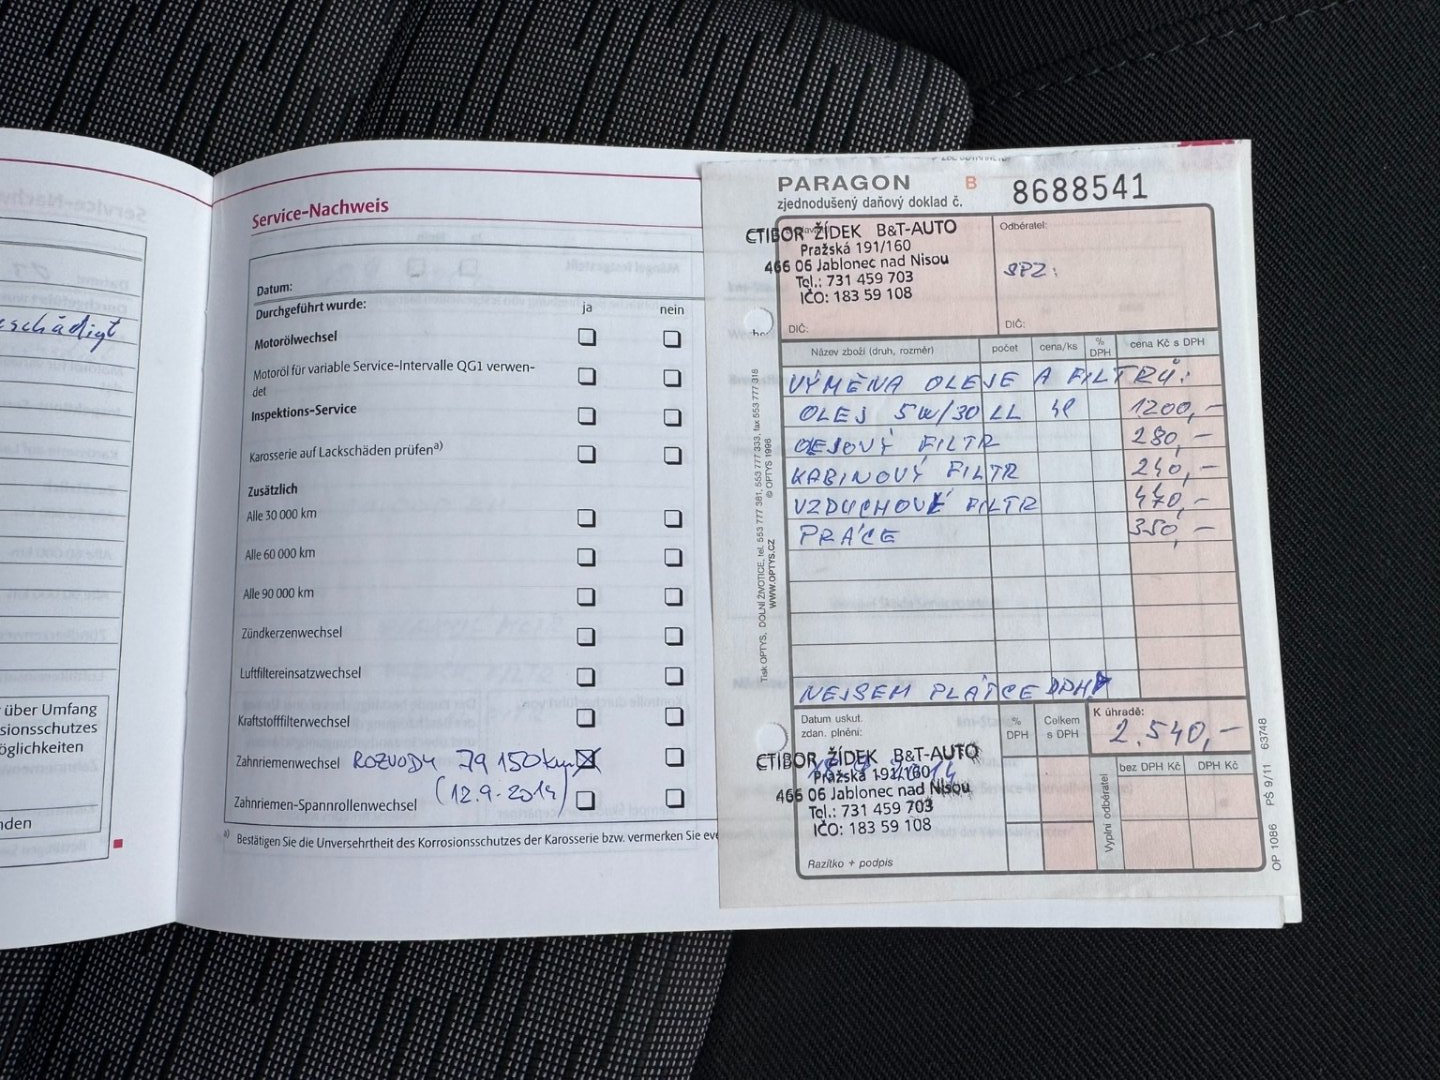 eschädigt
über Umfang
sionsschutzes
öglichkeiten
nden
Service-Nachweis
Datum:
Durchgeführt wurde:
ja
nein
Motorölwechsel
Motoröl für variable Service-Intervalle QG1 verwen-
det
Inspektions-Service
Karosserie auf Lackschäden prüfen a)
Zusätzlich
Alle 30 000 km
Alle 60 000 km
Alle 90 000 km
Zündkerzenwechsel
Luftfiltereinsatzwechsel
Kraftstofffilterwechsel
Zahnriemenwechsel ROZVODY 79 150 km
Zahnriemen-Spannrollenwechsel (12.9.2014)
a) Bestätigen Sie die Unversehrtheit des Korrosionsschutzes der Karosserie bzw. vermerken Sie eve
PARAGON B 8688541
zjednodušený daňový doklad č.
CTIBOR ŽÍDEK B&T-AUTO
Pražská 191/160
466 06 Jablonec nad Nisou
Tel.: 731 459 703
IČO: 183 59 108
DIČ:
Odběratel:
SPZ:
DIČ:
Název zboží (druh, rozměr) počet cena/ks % DPH cena Kč s DPH
VÝMĚNA OLEJE A FILTRŮ:
OLEJ 5W/30 LL 4l 1200,-
OLEJOVÝ FILTR 280,-
KABINOVÝ FILTR 240,-
VZDUCHOVÝ FILTR 470,-
PRÁCE 350,-
NEJSEM PLÁTCE DPH
Datum uskut.
zdan. plnění:
% DPH
Celkem s DPH
K úhradě:
2.540,-
CTIBOR ŽÍDEK B&T-AUTO
Pražská 191/160
466 06 Jablonec nad Nisou
Tel.: 731 459 703
IČO: 183 59 108
Razítko + podpis
Vyplní odběratel
bez DPH Kč DPH Kč
Tisk OPTYS, DOLNÍ ŽIVOTICE, tel. 553 777 381, 553 777 333, fax 553 777 318
WWW.OPTYS.CZ © OPTYS 1996
OP 1086 PŠ 9/11 63748